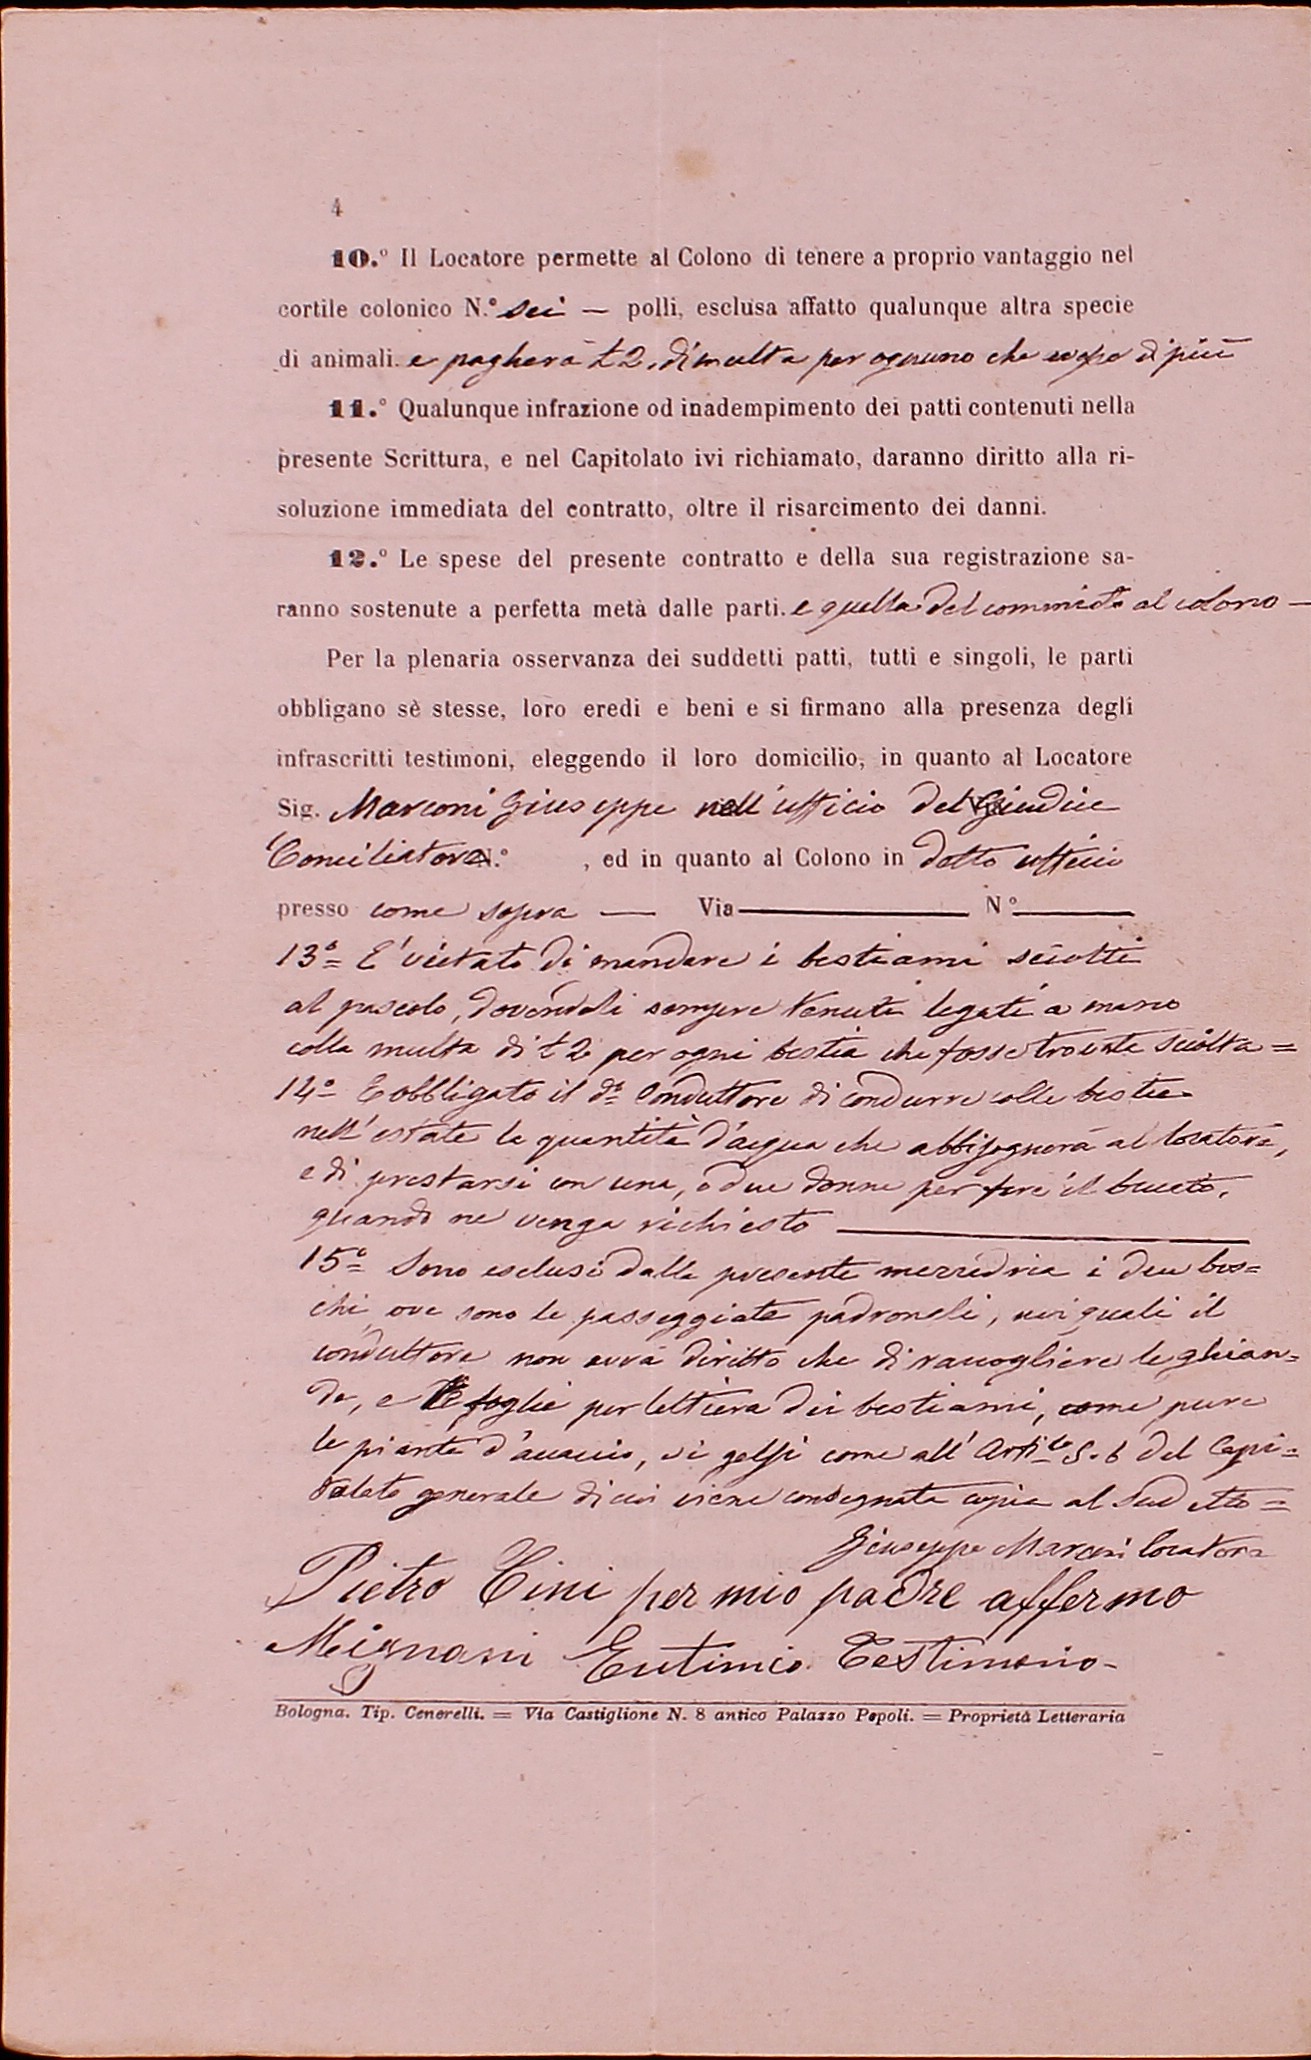 4
10.° Il Locatore permette al Colono di tenere a proprio vantaggio nel
cortile colonico N.° sei — polli, esclusa affatto qualunque altra specie
di animali. e pagherà £ 2. di multa per ognuno che di più
11.° Qualunque infrazione od inadempimento dei patti contenuti nella
presente Scrittura, e nel Capitolato ivi richiamato, daranno diritto alla ri-
soluzione immediata del contratto, oltre il risarcimento dei danni.
12.° Le spese del presente contratto e della sua registrazione sa-
ranno sostenute a perfetta metà dalle parti. e quella del commiato al colono —
Per la plenaria osservanza dei suddetti patti, tutti e singoli, le parti
obbligano sè stesse, loro eredi e beni e si firmano alla presenza degli
infrascritti testimoni, eleggendo il loro domicilio, in quanto al Locatore
Sig. Marconi Giuseppe nell'ufficio del Giudice
Conciliatore N.° , ed in quanto al Colono in detto ufficio
presso come sopra — Via N°
13° = E' vietato di mandare i bestiami sciolti
al pascolo, dovendoli sempre tenuti legati a mano
colla multa di £ 2 per ogni bestia che fosse trovata sciolta =
14° = E obbligato il d° Conduttore di condurre colle bestie
nell'estate la quantità d'acqua che abbisognerà al locatore,
e di prestarsi con una, o due donne per fare il bucato,
quando ne venga richiesto
15° = Sono esclusi dalla presente mezzedria i due bos=
chi ove sono le passeggiate padronali, nei quali il
conduttore non avrà diritto che di raccogliere le ghian=
de, e le foglie per lettiera dei bestiami, come pure
le piante d'accacio, ei gelsi come all' Arti.lo S. 6 del Capi=
tolato generale di cui viene consegnata copia al Sudetto =
Giuseppe Marconi locatore
Pietro Cini per mio padre affermo
Mignani Eutimio Testimonio -
Bologna. Tip. Cenerelli. = Via Castiglione N. 8 antico Palazzo Pepoli. = Proprietà Letteraria